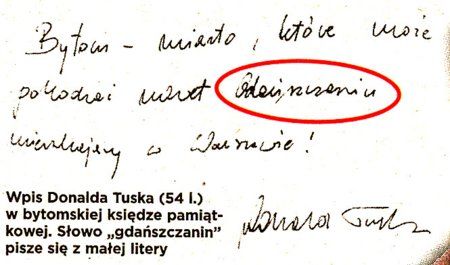 Bytom – miasto, które może
pokochać nawet Gdańszczanin
mieszkający w Warszawie!
Donald Tusk
Wpis Donalda Tuska (54 l.)
w bytomskiej księdze pamiąt-
kowej. Słowo „gdańszczanin”
pisze się z małej litery